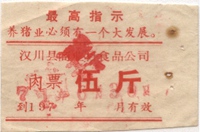 最高指示
养猪业必须有一个大发展。
汉川县 食品公司
肉票 伍斤
到197 年 月有效